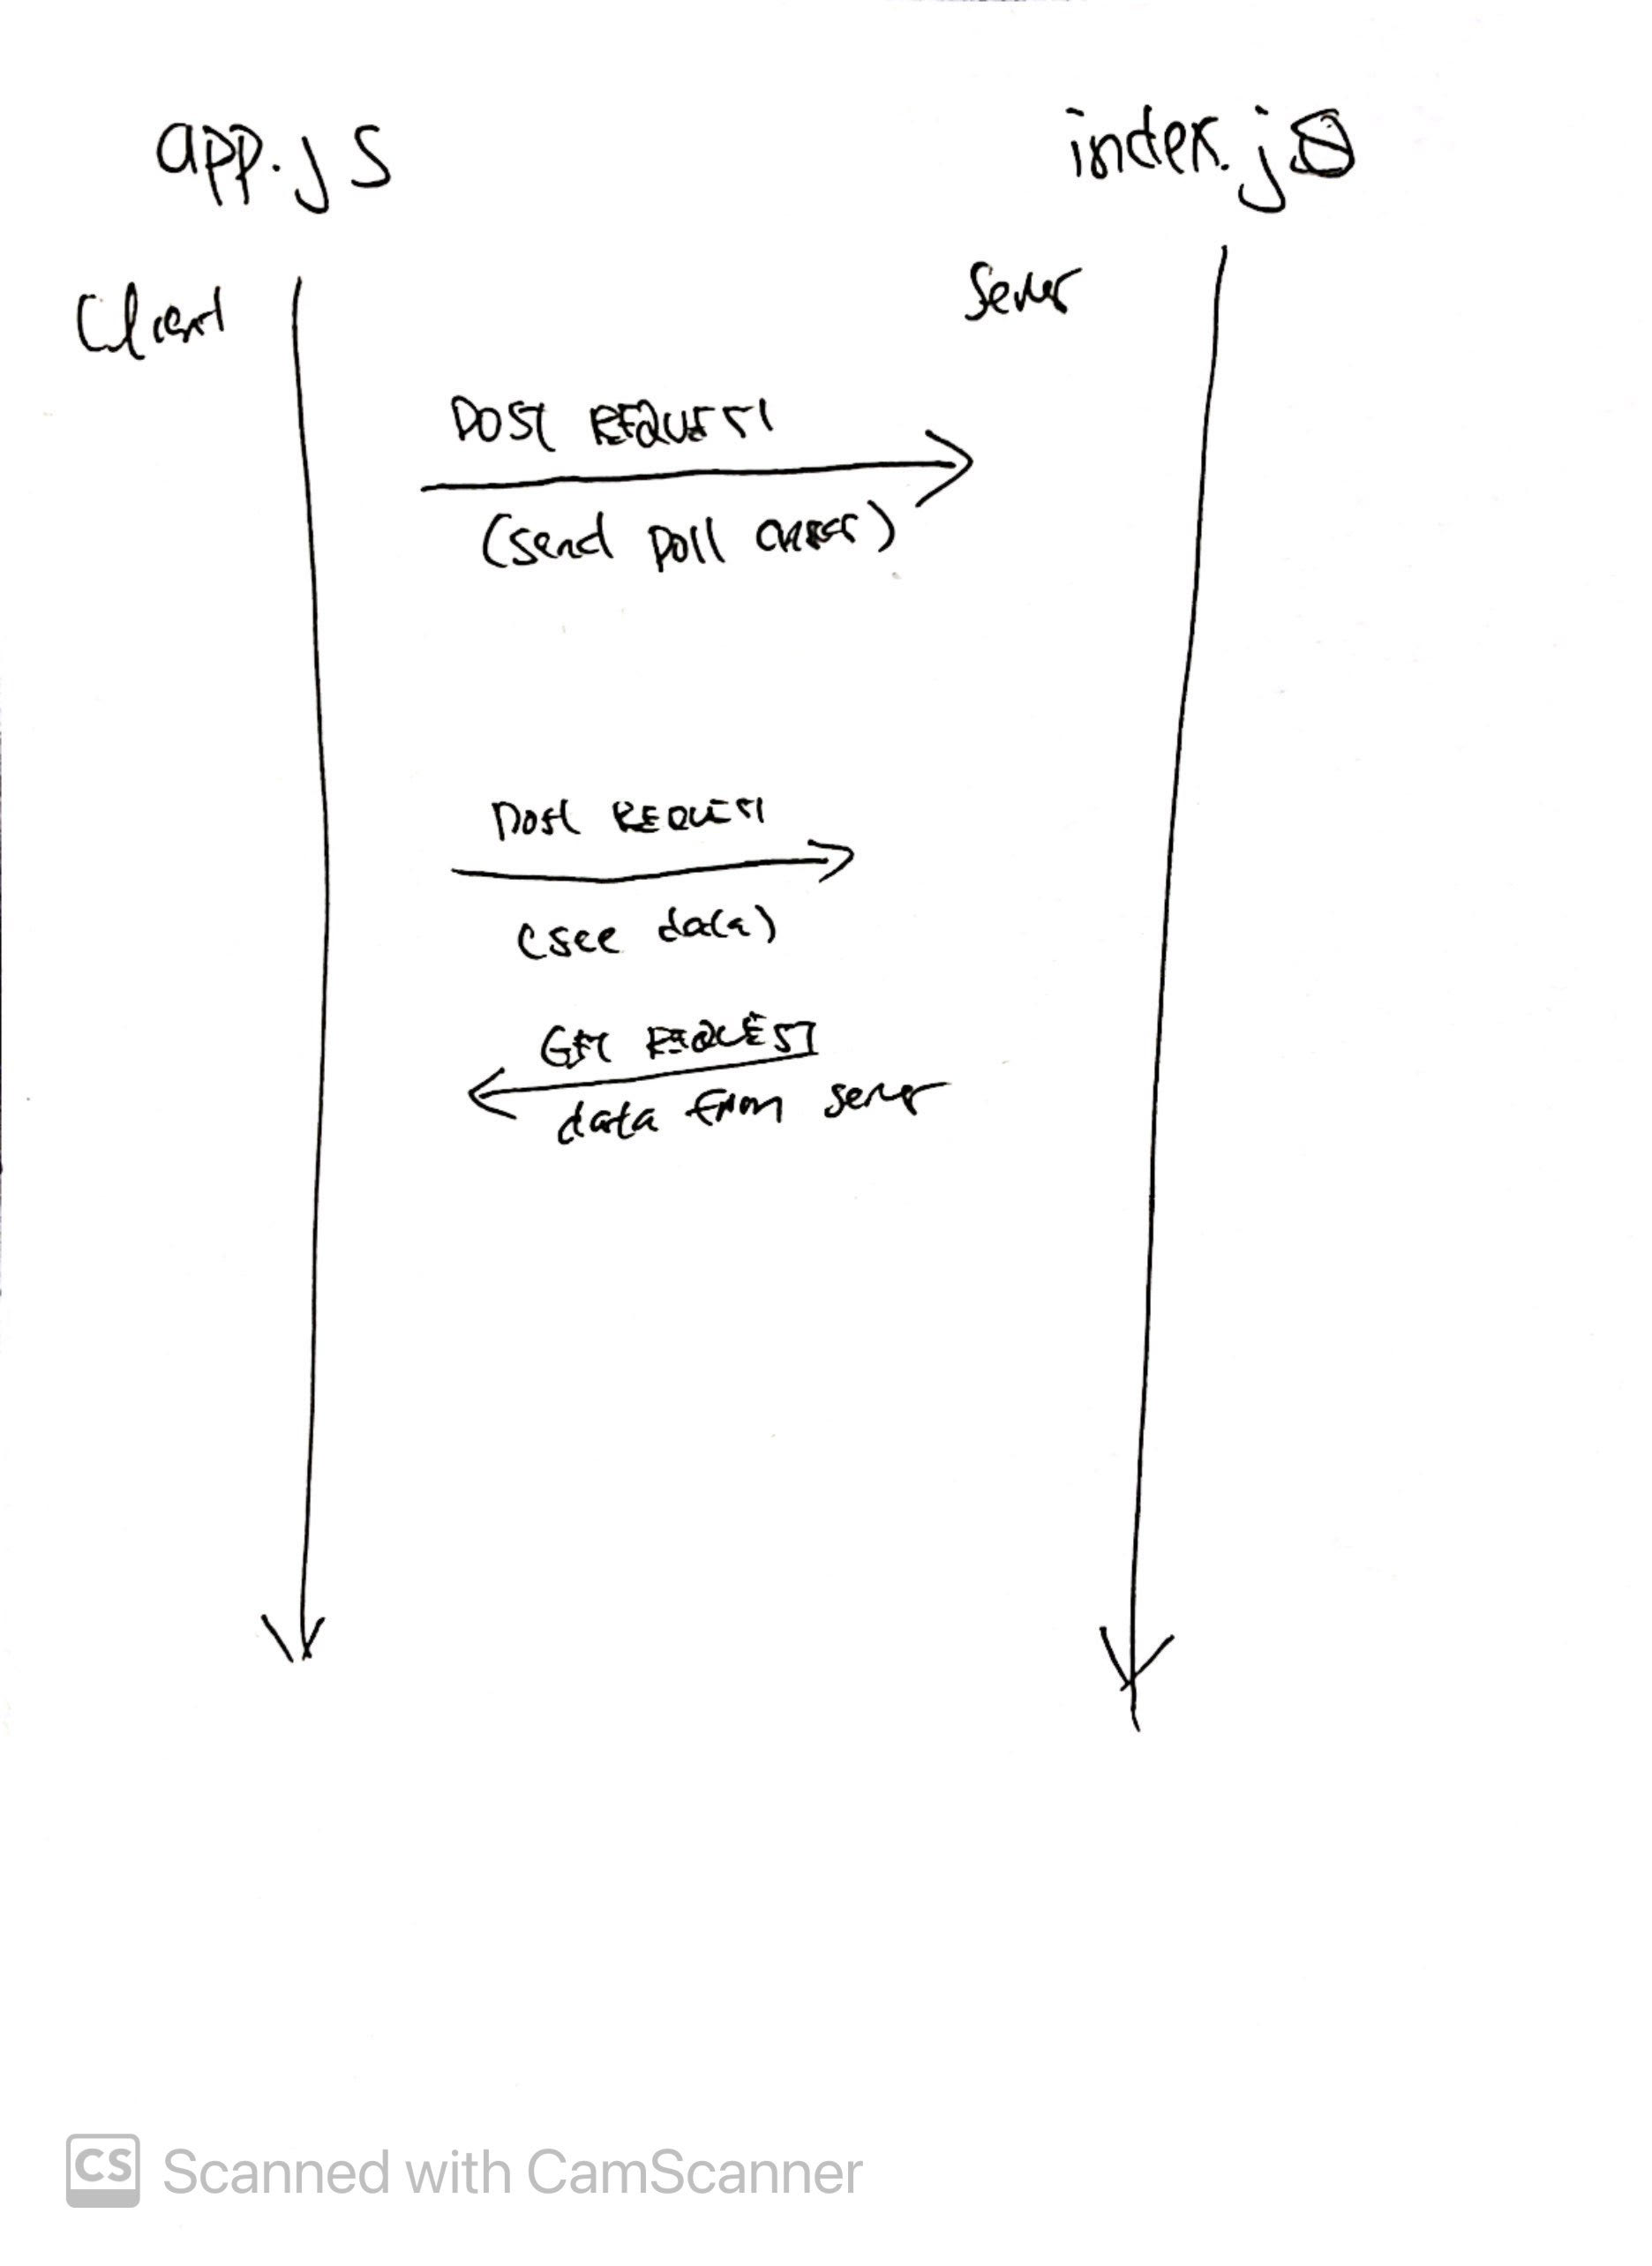 app.js
index.js
Client
Server
POST REQUEST
(send poll answer)
POST REQUEST
(see data)
GET REQUEST
data from server
CS Scanned with CamScanner